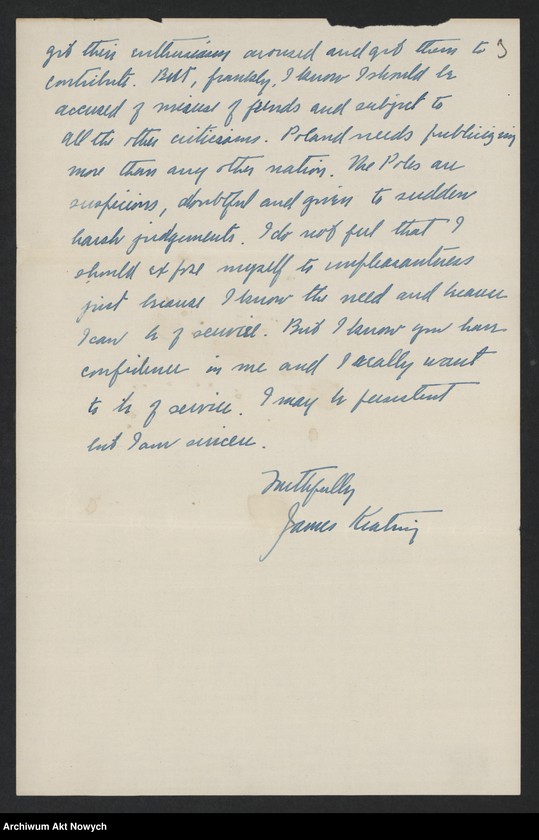 got their enthusiasm aroused and get them to 3
contribute. But, frankly, I know I should be
accused of misuse of funds and subject to
all the other criticisms. Poland needs publicizing
more than any other nation. The Poles are
suspicious, doubtful and given to sudden
harsh judgements. I do not feel that I
should expose myself to unpleasantness
just because I know the need and because
I can be of service. But I know you have
confidence in me and I really want
to be of service. I may be persistent
but I am sincere.
Faithfully
James Keating
Archiwum Akt Nowych